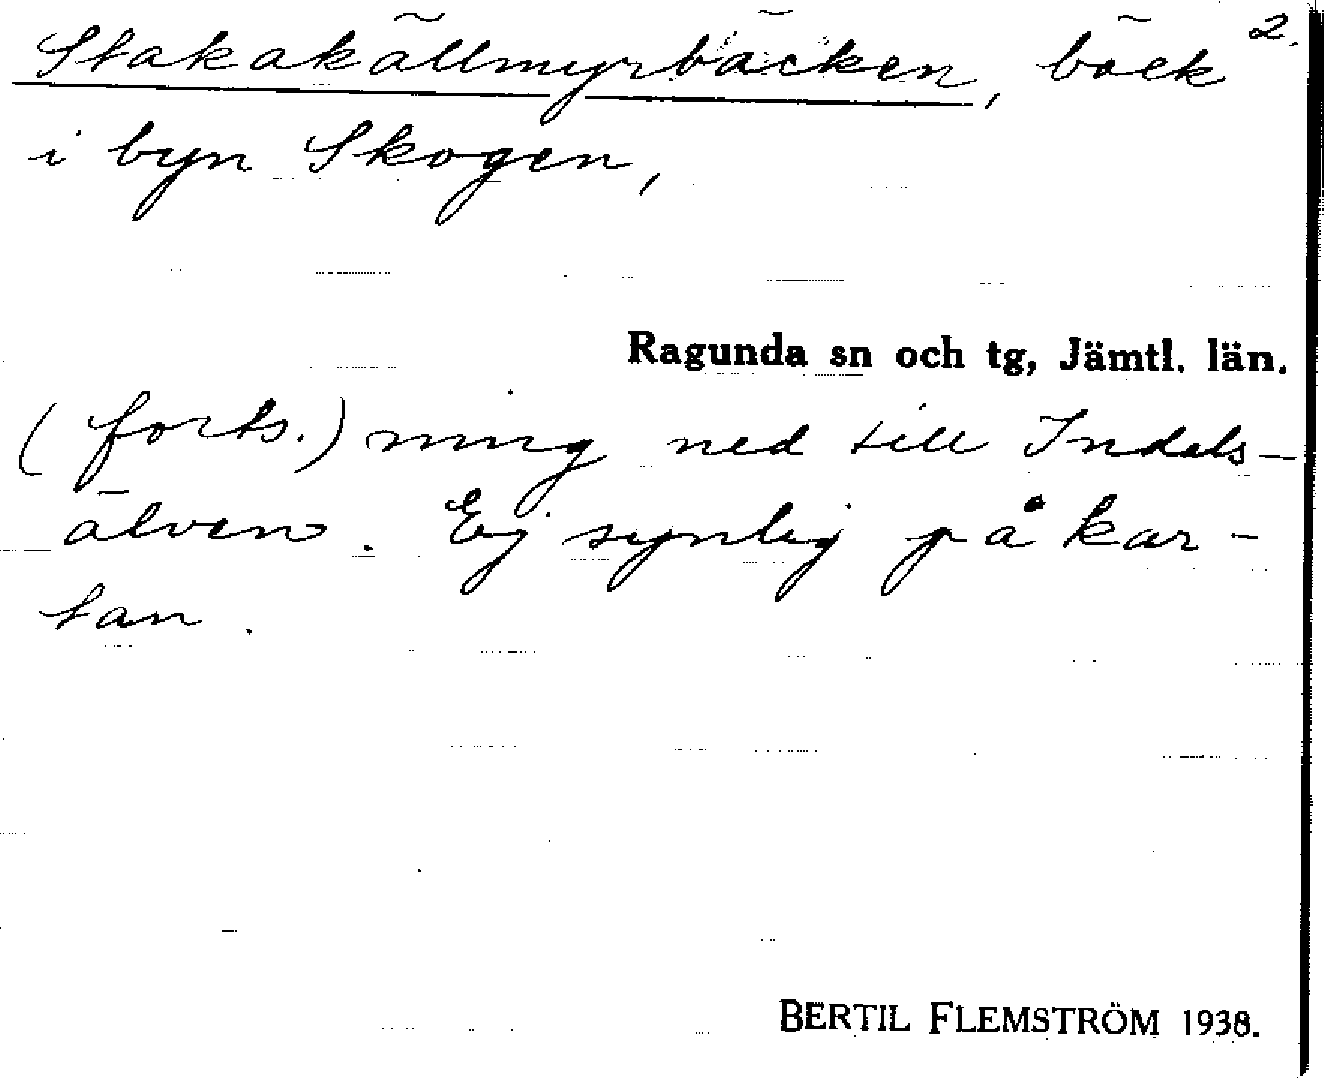 Stakakällmyrbäcken, bäck 2.
i byn Skogen,
Ragunda sn och tg, Jämtl. län.
(forts.) ning ned till Indals-
älven. Ej synlig på kar-
tan.
BERTIL FLEMSTRÖM 1938.